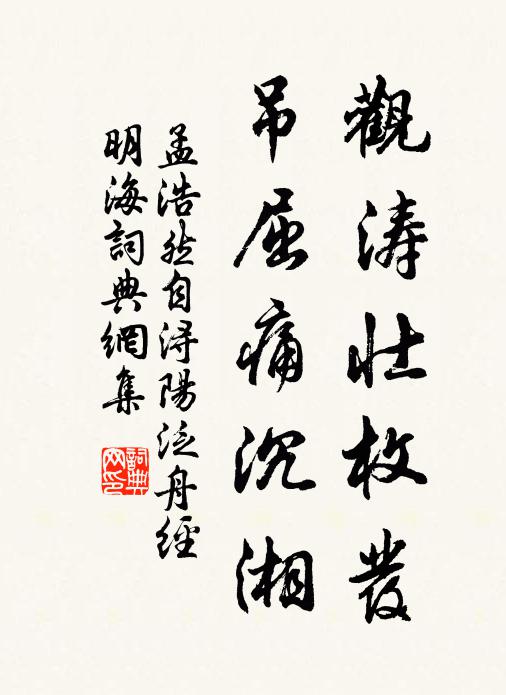 觀涛壯枚發
吊屈痛沉湘
孟浩然自潯陽泛舟經
明海詞典網集
詞典网印